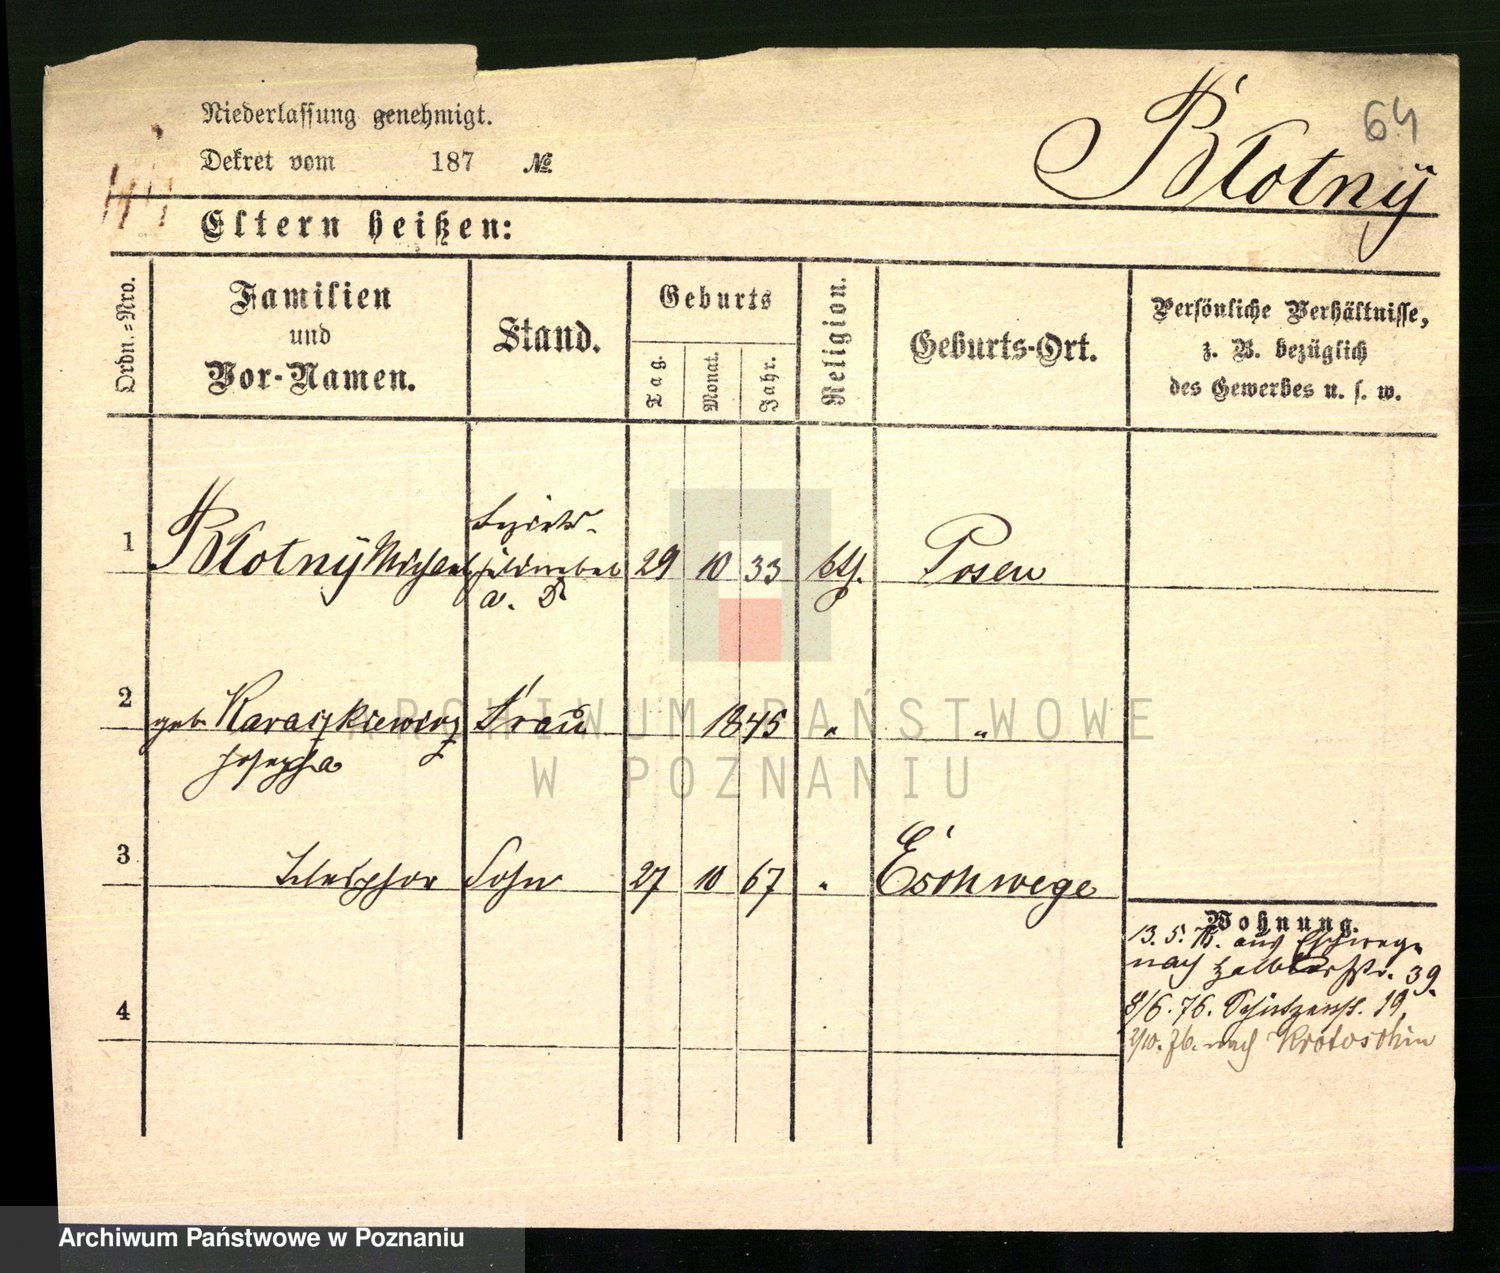 Niederlassung genehmigt.
64
Dekret vom 187 №.
Blotny
Eltern heißen:
Ordn.-Nro.
Familien
und
Vor-Namen.
Stand.
Geburts
Tag.
Monat.
Jahr.
Religion.
Geburts-Ort.
Persönliche Verhältnisse,
z. B. bezüglich
des Gewerbes u. s. w.
Bezirks-
1 Blotny Michael feldwebel 29 10 33 kth. Posen
a. D
2 geb. Karaszkiewicz Frau 1845 " "
Josepha
3 Telesphor Sohn 27 10 67 " Eschwege
Wohnung.
13. 5. aus Eschwege
nach Halbdorfstr. 39.
8/6. 76. Schützenstr. 19.
4
2/10. 76. nach Krotoschin
ARCHIWUM PAŃSTWOWE
W POZNANIU
Archiwum Państwowe w Poznaniu